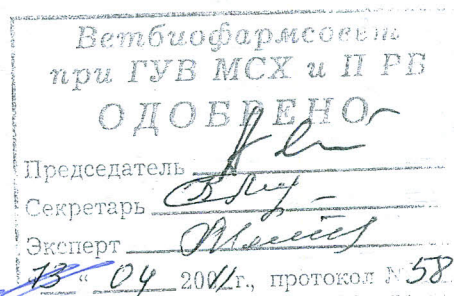 Ветбиофармсовет
при ГУВ МСХ и П РБ
ОДОБРЕНО
Председатель
Секретарь
Эксперт
"13" 04 200 г., протокол № 58